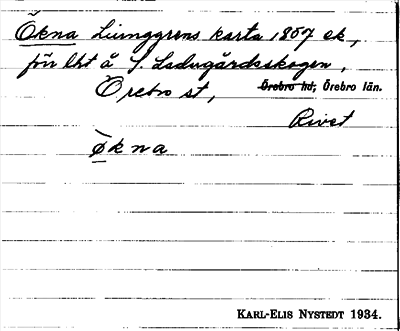 Ökna Ljunggrens karta 1857 ek,
förr lht å f. Ladugårdsskogen,
Örebro st, Örebro hd, Örebro län.
Rivet
økna
KARL-ELIS NYSTEDT 1934.